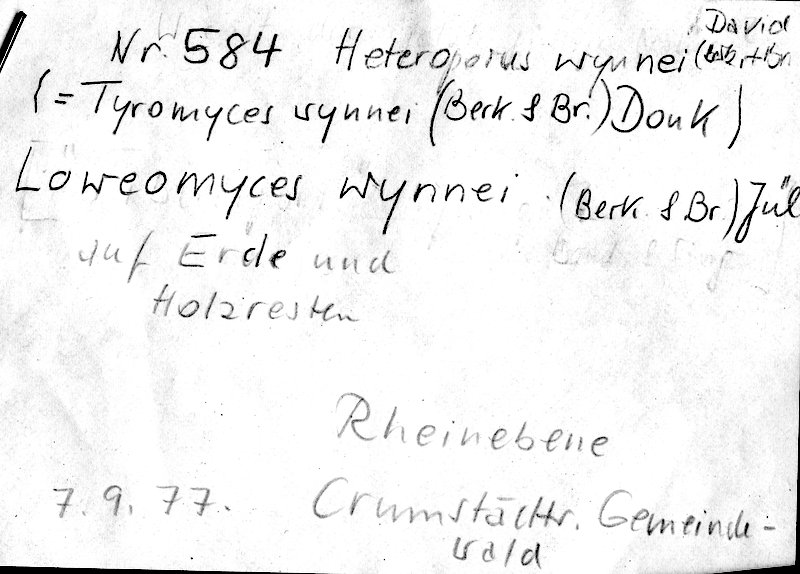 Nr. 584 Heteroporus wynnei (Berk. et Br.) David
(= Tyromyces wynnei (Berk. & Br.) Donk)
Löweomyces wynnei (Berk. & Br.) Jül
auf Erde und
Holzresten
Rheinebene
7. 9. 77. Crumstädtr. Gemeinde-
wald